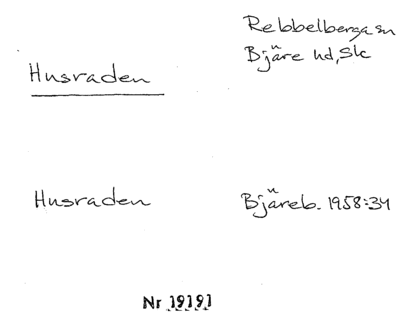 Rebbelberga sn
Husraden
Bjäre hd, Sk
Husraden
Bjäreb. 1958:34
Nr 19191